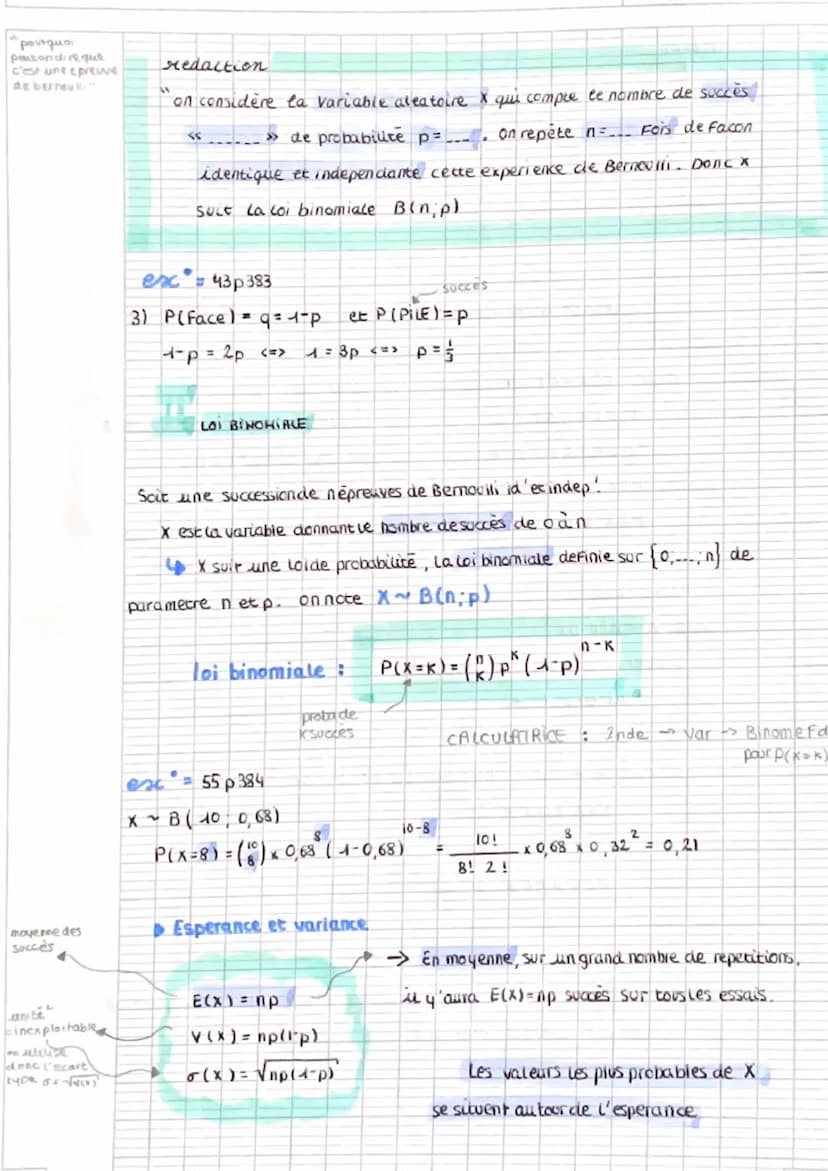 "pourquoi
peut on dire que
c'est une epreuve
de bernouli"
redaction
"on considère la variable aleatoire X qui compte le nombre de succès
"......." de probabilité p=..... on repète n=.... Fois de facon
identique et independante cette experience de Bernouilli. Donc x
suit la loi binomiale B(n;p)
exc° = 43p383
succès
3) P(Face) = q = 1-p et P(PILE)=p
1-p = 2p <=> 1 = 3p <=> p = 1/3
II
LOI BINOMIALE
Soit une succession de n épreuves de Bernouilli id' et indep'.
X est la variable donnant le nombre de succès de 0 à n
↳ X suit une loi de probabilité, la loi binomiale definie sur {0;...;n} de
parametre n et p. on note X ~ B(n;p)
loi binomiale : P(X=K) = (n K) p^K (1-p)^n-K
proba de
K succès
CALCULATRICE : 2nde → var → BinomeFd
pour P(X=K)
exc° = 55 p 384
X ~ B( 10 ; 0,68)
P(X=8) = (10 8) x 0,68^8 (1-0,68)^10-8 = 10!/8! 2! x 0,68^8 x 0,32^2 = 0,21
▶ Esperance et variance
moyenne des
succès
→ En moyenne, sur un grand nombre de repetitions,
E(X) = np
il y'aura E(X)=np succès sur tous les essais.
unité²
c inexploitable
V(X) = np(1-p)
on utilise
donc l'ecart
type σ = √V(X)
σ(X) = √np(1-p)
Les valeurs les plus probables de X
se situent autour de l'esperance